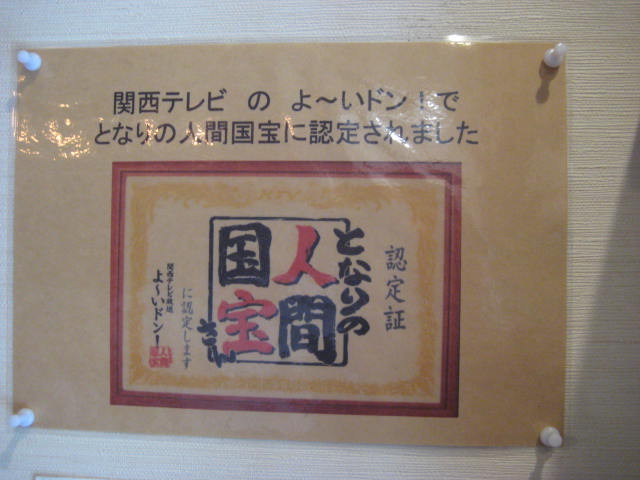 関西テレビ の よ～いドン！で
となりの人間国宝に認定されました
認定証
となりの
人間
国宝
さん
に認定します
関西テレビ放送
よ～いドン！